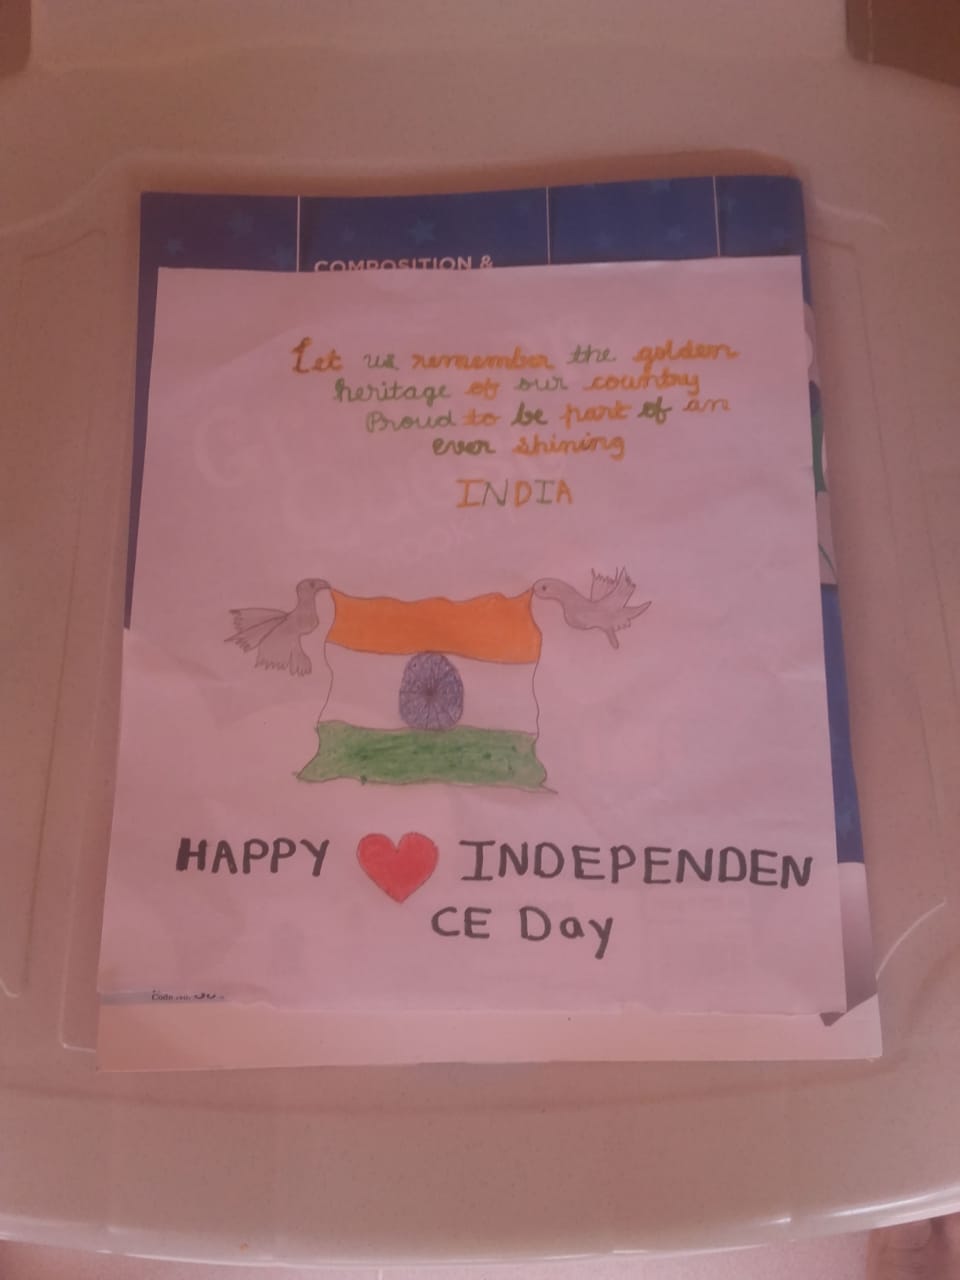 COMPOSITION &
Let us remember the golden
heritage of our country
Proud to be part of an
ever shining
INDIA
HAPPY INDEPENDEN
CE Day
Code No.